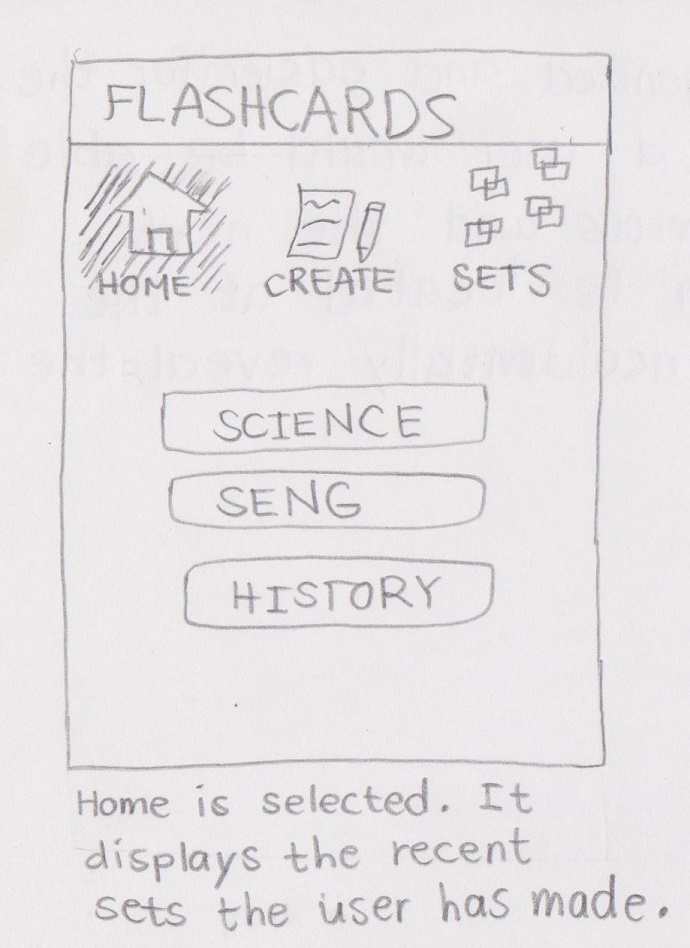 FLASHCARDS
HOME CREATE SETS
SCIENCE
SENG
HISTORY
Home is selected. It
displays the recent
sets the user has made.